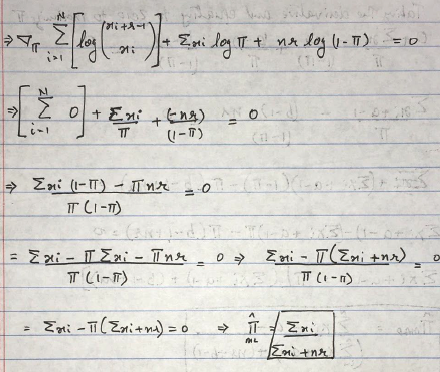 ⇒ ∇π Σ_{i=1}^{N} [log (xi+r-1 / xi)] + Σxi log π + nr log (1-π) = 0
⇒ [Σ_{i=1}^{N} 0] + Σxi/π + (-nr)/(1-π) = 0
⇒ Σxi (1-π) - π nr / π (1-π) = 0
= Σxi - π Σxi - π nr / π (1-π) = 0 ⇒ Σxi - π (Σxi + nr) / π (1-π) = 0
= Σxi - π (Σxi + nr) = 0 ⇒ π̂_ML = Σxi / Σxi + nr